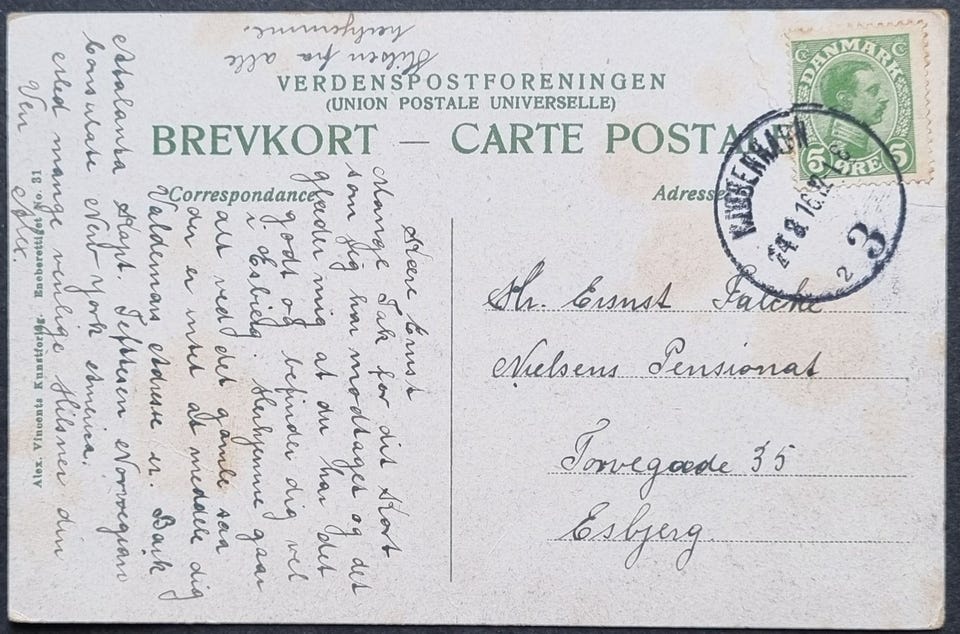 Hilsen fra alle
herhjemme.
VERDENSPOSTFORENINGEN
(UNION POSTALE UNIVERSELLE)
BREVKORT — CARTE POSTA
Correspondance
Adresse
DANMARK
5 ØRE 5
KJØBENHAVN
24.8.16.
3
2
Kære Ernst
Mange Tak for dit Kort
som jeg har modtaget og det
glæder mig at du har det
godt og befinder dig vel
i Esbjerg. Herhjemme gaar
alt ved det gamle saa
der er intet at meddele dig
Valdemars Adresse er. Bark
Atalanta Kapt. Teftesen Norvegian
Consulate New-York America.
erbed mange venlige Hilsner din
Ven Alex.
Alex. Vincents Kunstforlag. Eneberettiget No. 31
Hr. Ernst Falcke
Nielsens Pensionat
Torvegade 35
Esbjerg.